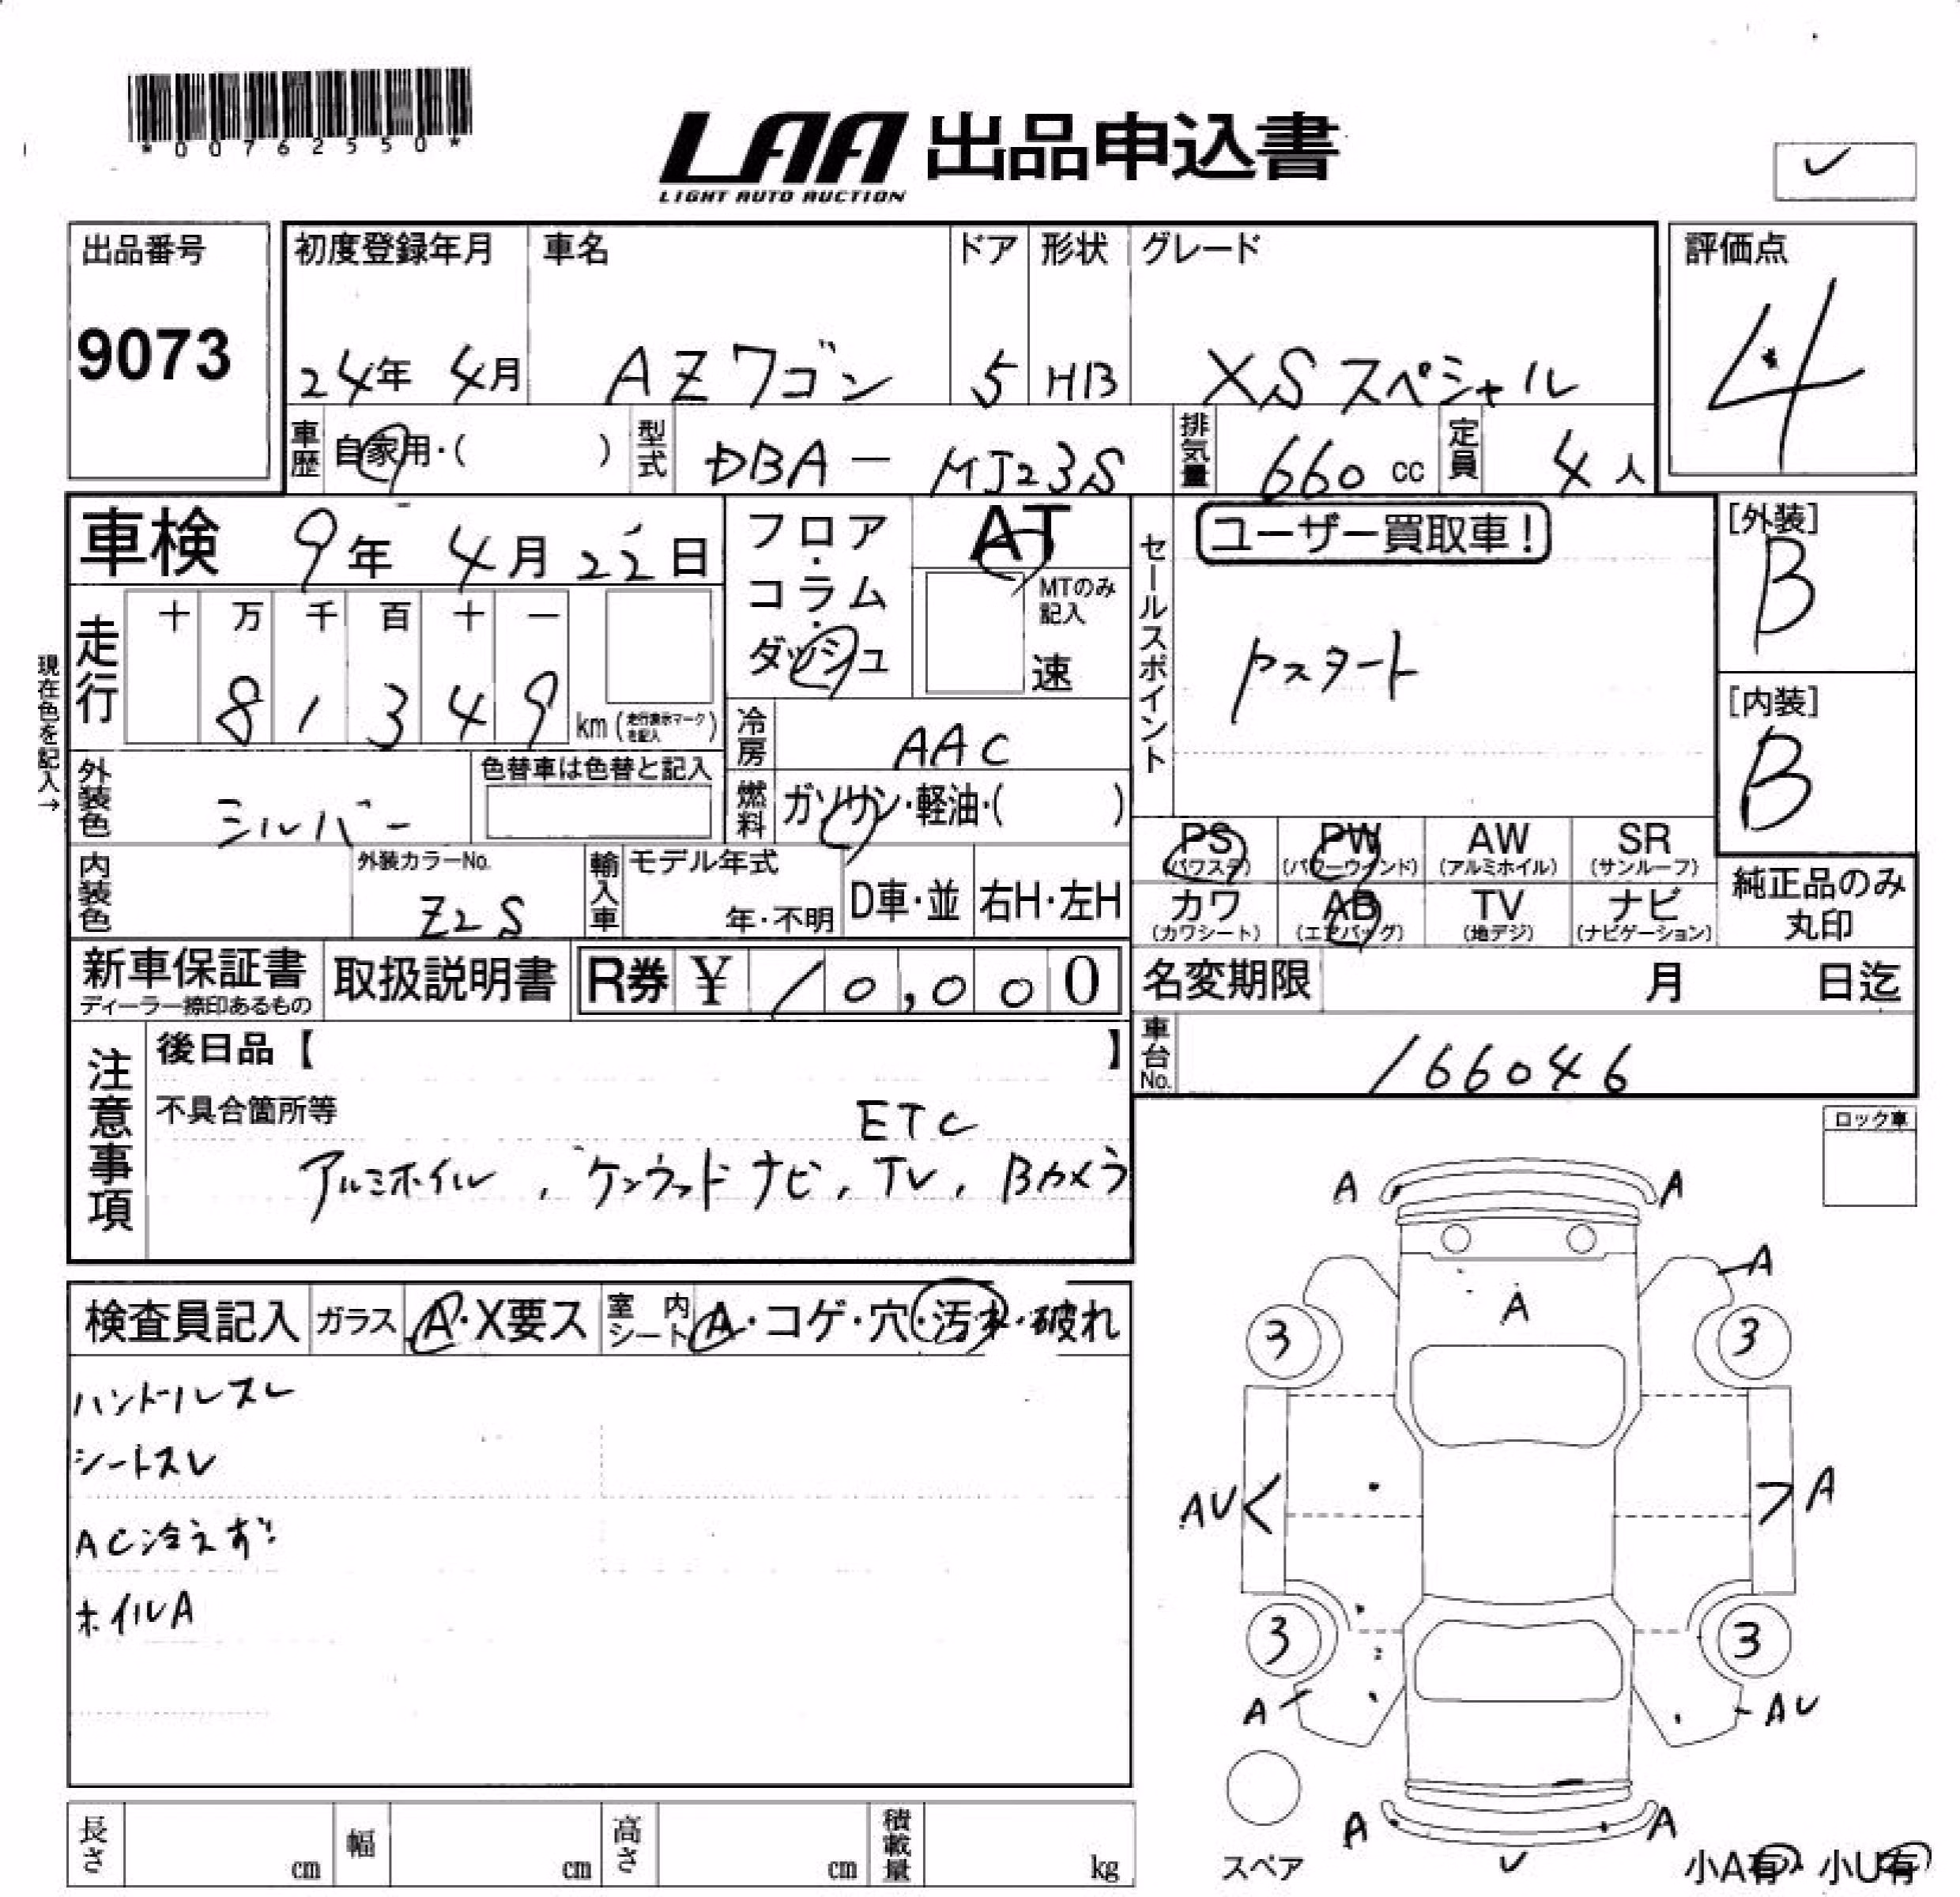 *00762550*
LAA 出品申込書
LIGHT AUTO AUCTION
✓
出品番号
9073
初度登録年月
24年 4月
車名
AZワゴン
ドア
5
形状
HB
グレード
XSスペシャル
評価点
4
車歴
自家用・( )
型式
DBA - MJ23S
排気量
660 cc
定員
4 人
車検 9年 4月 22日
フロア・コラム・ダッシュ
AT
MTのみ記入
速
セールスポイント
ユーザー買取車!
Pスタート
[外装]
B
[内装]
B
現在色を記入→
走行
十 万 千 百 十 一
8 1 3 4 9
km (走行表示マークを記入)
冷房
AAC
燃料
ガソリン・軽油・( )
外装色
シルバー
色替車は色替と記入
内装色
外装カラーNo.
Z2S
輸入車
モデル年式
年・不明
D車・並
右H・左H
PS (パワステ)
PW (パワーウインド)
AW (アルミホイル)
SR (サンルーフ)
カワ (カワシート)
AB (エアバッグ)
TV (地デジ)
ナビ (ナビゲーション)
純正品のみ
丸印
新車保証書
ディーラー捺印あるもの
取扱説明書
R券 ¥ 10,000
名変期限 月 日迄
車台No.
166046
注意事項
後日品【 】
不具合箇所等
ETC
アルミホイル, ケンウッドナビ, TV, Bカメラ
ロック車
検査員記入
ガラス
A・X要ス
室内シート
A・コゲ・穴・汚れ・破れ
ハンドルスレ
シートスレ
AC冷えず
ホイルA
A A
A
A
3 3
AU A
3 3
A AU
A A
スペア
小A有・小U有
長さ cm
幅 cm
高さ cm
積載量 kg